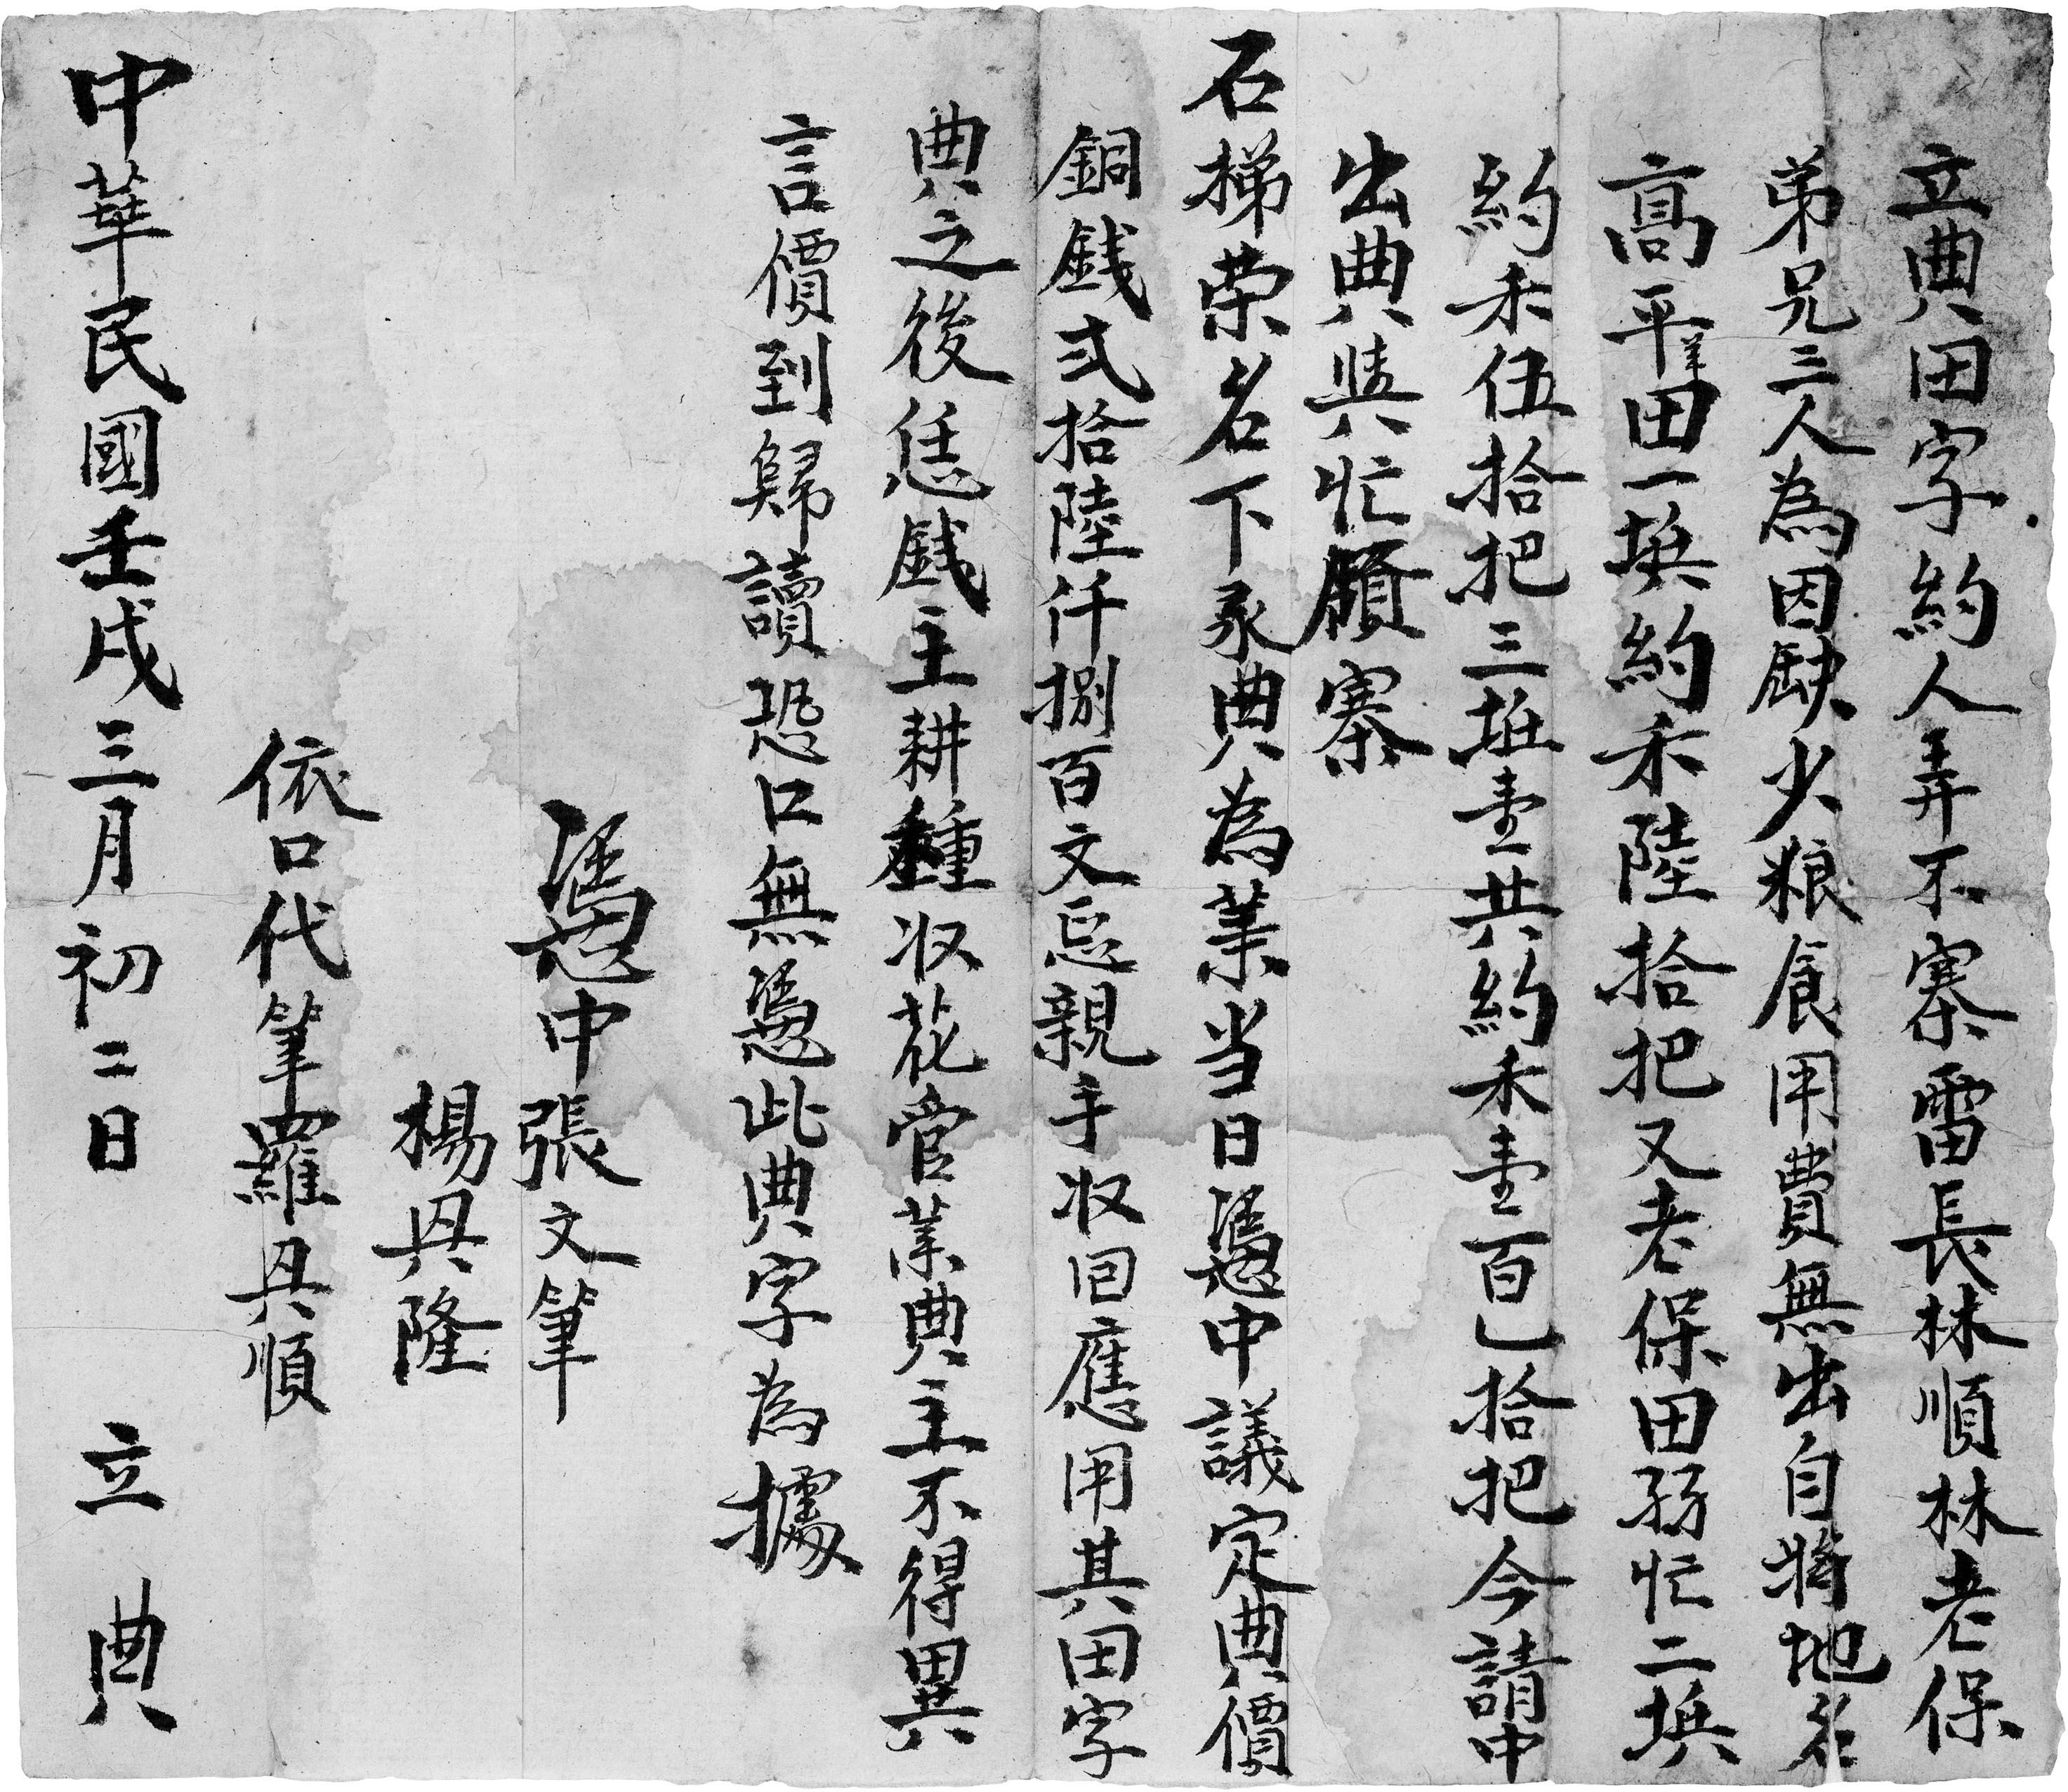 立典田字約人弄不寨雷長林順林老保
弟兄三人為因缺少粮食用費無出自將地名
高平羊田一坵約禾陸拾把又老保田孖忙二坵
約禾伍拾把三坵壹共約禾壹百乚拾把今請中
出典與忙願寨
石梯荣名下承典為業当日憑中議定典價
銅錢弍拾陸仟捌百文忘親手収回應用其田字
典之後恁錢主耕種収花管業典主不得異
言價到歸讀恐口無憑此典字為據
憑中張文筆
楊具隆
依口代筆羅具順
中華民國壬戌三月初二日 立典